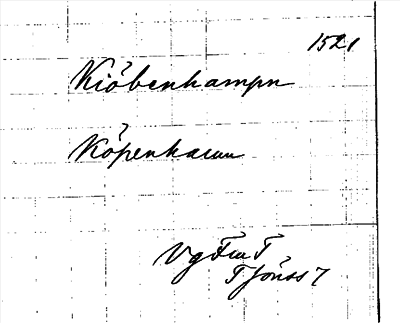 1521
Kiöbenhampn
Köpenhamn
VgFm T
T Jönss 7